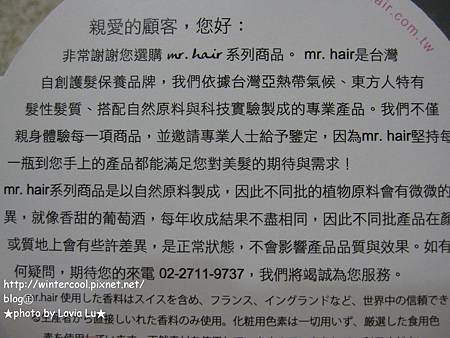 親愛的顧客，您好：
hair.com.tw
非常謝謝您選購 mr. hair 系列商品。 mr. hair是台灣
自創護髮保養品牌，我們依據台灣亞熱帶氣候、東方人特有
髮性髮質、搭配自然原料與科技實驗製成的專業產品。我們不僅
親身體驗每一項商品，並邀請專業人士給予鑒定，因為mr. hair堅持每
一瓶到您手上的產品都能滿足您對美髮的期待與需求！
mr. hair系列商品是以自然原料製成，因此不同批的植物原料會有微微的
異，就像香甜的葡萄酒，每年收成結果不盡相同，因此產品在顏
或質地上會有些許差異，是正常狀態，不會影響產品品質與效果。如有
何疑問，期待您的來電 02-2711-9737，我們將竭誠為您服務。
http://wintercool.pixnet.net/
blog◎
mr.hair 使用した香料はスイスを含め、フランス、イングランドなど、世界中の信頼でき
★photo by Lavia Lu★
る生産者から直接しいれた香料のみ使用。化粧用色素は一切用いず、厳選した食用色